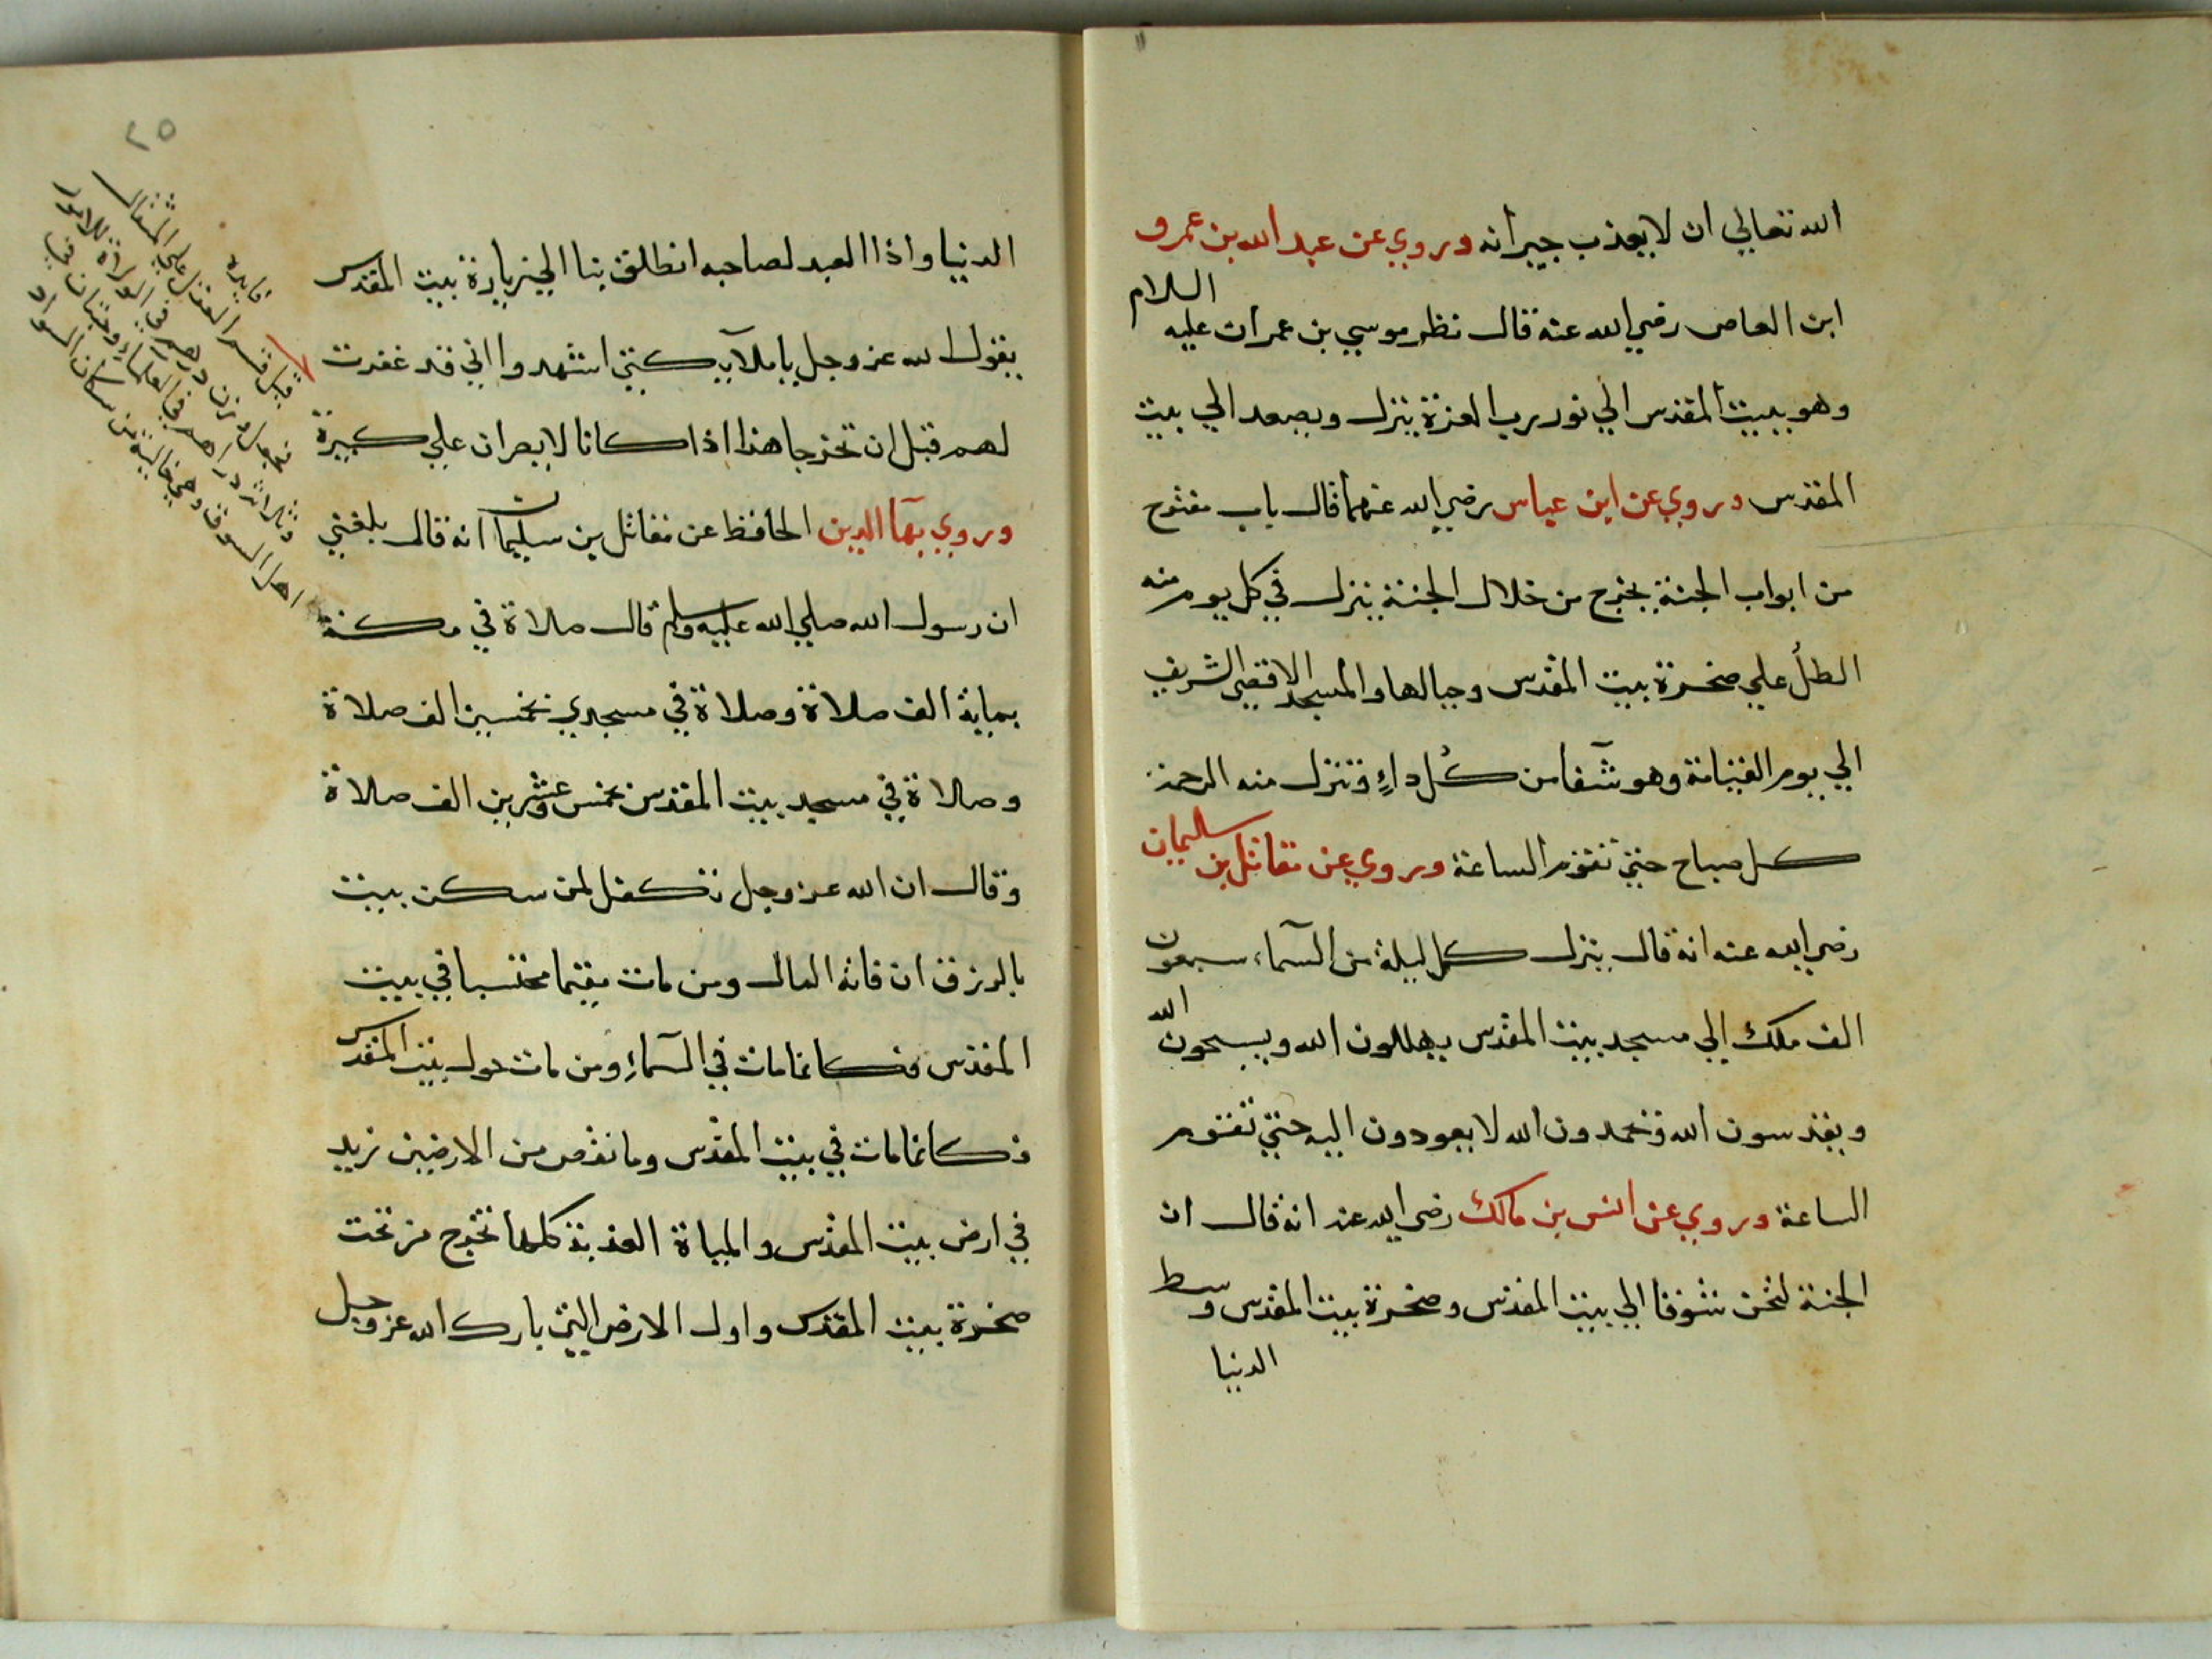 الله تعالي ان لا يعذب جيرانه وروي عن عبد الله بن عمرو
ابن العاص رضي الله عنه قال نظر موسي بن عمران عليه السلام
وهو ببيت المقدس الي نور رب العزة ينزل ويصعد الي بيت
المقدس وروي عن ابن عباس رضي الله عنهما قال باب مفتوح
من ابواب الجنة يخرج من خلال الجنة ينزل في كل يوم منه
الطل علي صخرة بيت المقدس وجبالها والمسجد الاقصي الشريف
الي يوم القيامة وهو شفا من كل داءٍ وتنزل منه الرحمة
كل صباح حتي تقوم الساعة وروي عن مقاتل بن سليمان
رضي الله عنه انه قال ينزل كل ليلة من السماء سبعون
الف ملك الي مسجد بيت المقدس يهللون الله ويسبحون الله
ويقدسون الله ويحمدون الله لا يعودون اليه حتي تقوم
الساعة وروي عن انس بن مالك رضي الله عنه انه قال ان
الجنة لتحن شوقا الي بيت المقدس وصخرة بيت المقدس وسط
الدنيا
٢٥
الدنيا واذا العبد لصاحبه انطلق بنا الي زيارة بيت المقدس
يقول الله عز وجل يا ملآيكتي اشهدوا اني قد غفرت
لهم قبل ان تخرجا هذا اذا كانا لا يصران علي كبيرة
وروي بهآ الدين الحافظ عن مقاتل بن سليمان انه قال بلغني
ان رسول الله صلي الله عليه وسلم قال صلاة في مكة
بماية الف صلاة وصلاة في مسجدي بخمسين الف صلاة
وصلاة في مسجد بيت المقدس بخمس وعشرين الف صلاة
وقال ان الله عز وجل تكفل لمن سكن بيت
بالرزق ان فاته المال ومن مات مقيما محتسبا في بيت
المقدس فكانما مات في السماءِ ومن مات حول بيت المقدس
فكانما مات في بيت المقدس وما نقص من الارضين زيد
في ارض بيت المقدس والمياة العذبة كلها تخرج من تحت
صخرة بيت المقدس واول الارض التي بارك الله عز وجل
فايده
قيل قسم العقل علي